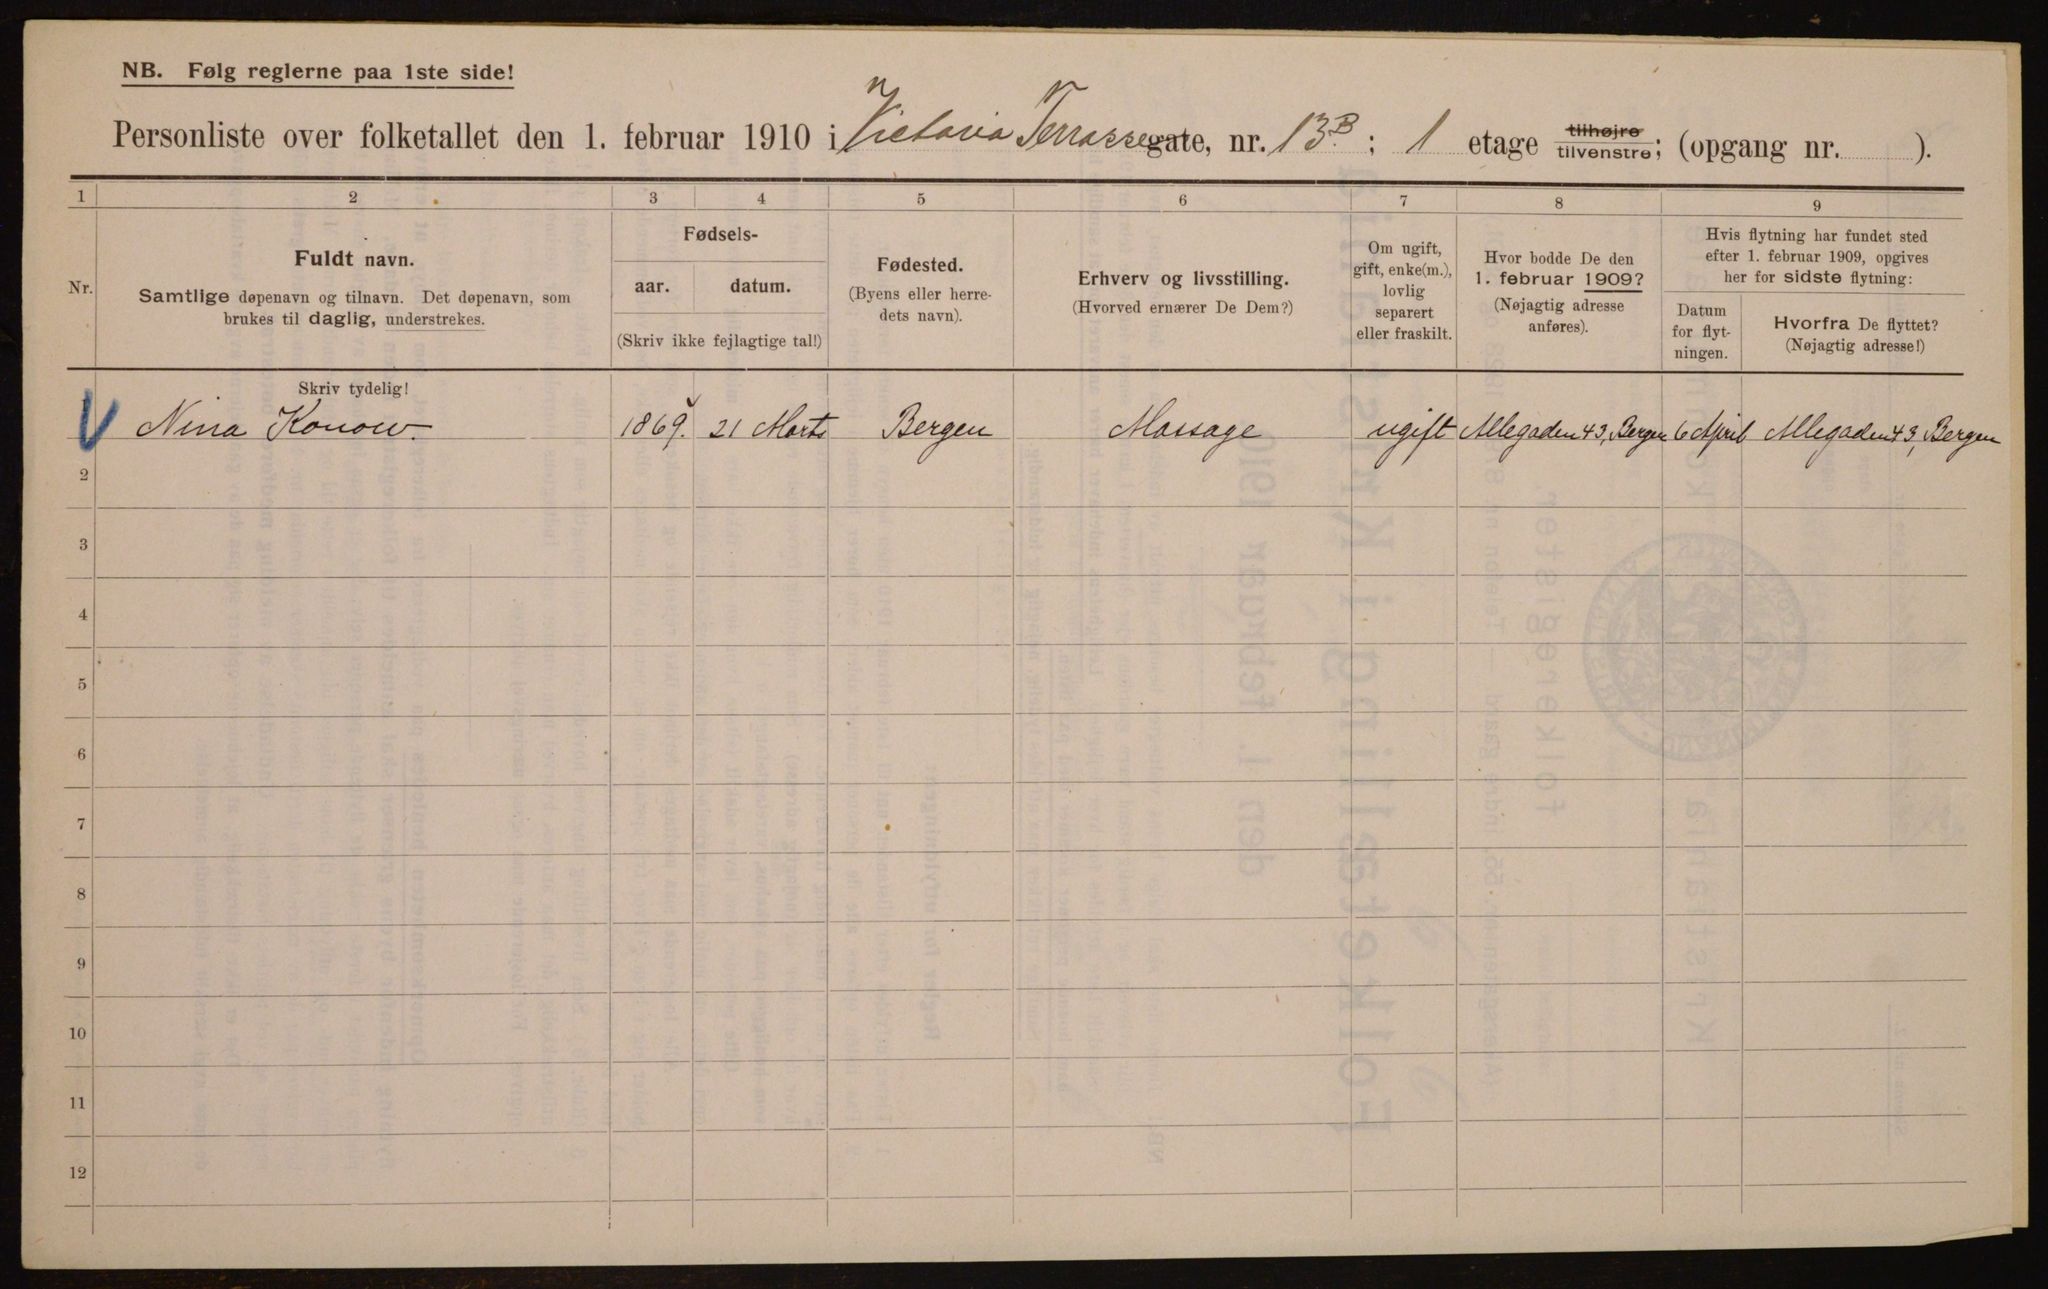 NB. Følg reglerne paa 1ste side!
Personliste over folketallet den 1. februar 1910 i Victoria Terrassegate, nr. 13B; 1 etage tilhøjre tilvenstre; (opgang nr. ).
1 2 3 4 5 6 7 8 9
Nr.
Fuldt navn.
Samtlige døpenavn og tilnavn. Det døpenavn, som
brukes til daglig, understrekes.
Fødsels-
aar. datum.
(Skriv ikke fejlagtige tal!)
Fødested.
(Byens eller herre-
dets navn).
Erhverv og livsstilling.
(Hvorved ernærer De Dem?)
Om ugift,
gift, enke(m.),
lovlig
separert
eller fraskilt.
Hvor bodde De den
1. februar 1909?
(Nøjagtig adresse
anføres).
Hvis flytning har fundet sted
efter 1. februar 1909, opgives
her for sidste flytning:
Datum
for flyt-
ningen.
Hvorfra De flyttet?
(Nøjagtig adresse!)
Skriv tydelig!
Nina Konow. 1869. 21 Marts Bergen Massage ugift Allegaden 43, Bergen 6 April Allegaden 43, Bergen
2
3
4
5
6
7
8
9
10
11
12